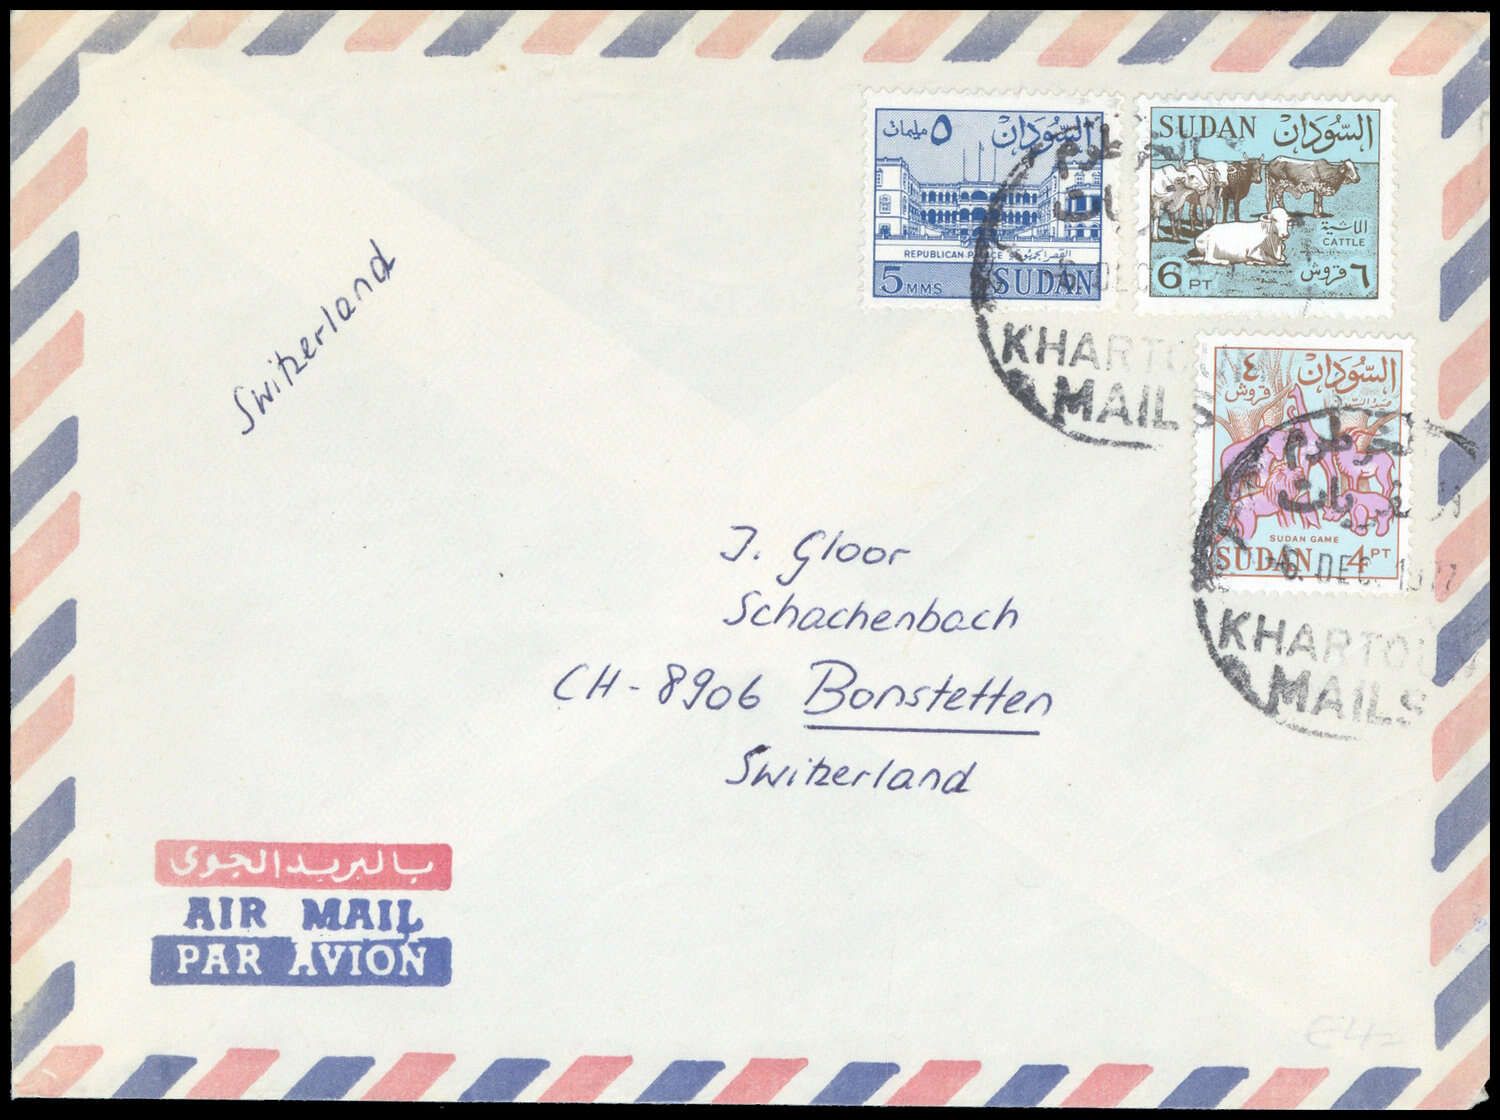 ٥ مليمات السودان
REPUBLICAN PALACE
5 MMS SUDAN
SUDAN السودان
الماشية
CATTLE
6 PT قروش ٦
DEC
KHARTOUM
MAILS
٤ السودان
قروش
SUDAN GAME
SUDAN 4 PT
الخرطوم
6 DEC. 1977
KHARTOUM
MAILS
Switzerland
J. Gloor
Schachenbach
CH-8906 Bonstetten
Switzerland
بالبريد الجوى
AIR MAIL
PAR AVION